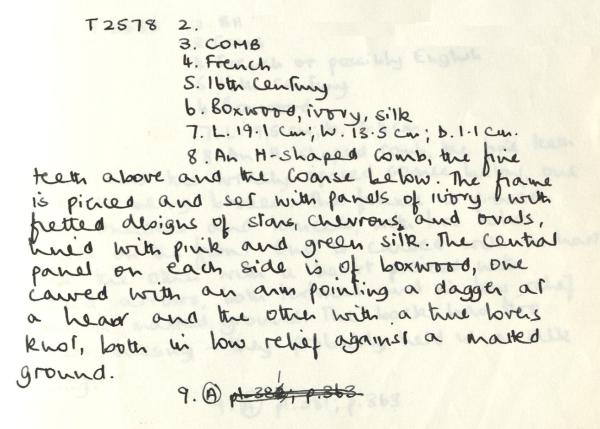 T2578 2.
3. COMB
4. French
5. 16th Century
6. Boxwood, ivory, silk
7. L. 19.1 cm; W. 13.5 cm; D. 1.1 cm.
8. An H-shaped comb, the fine
teeth above and the coarse below. The frame
is pierced and set with panels of ivory with
fretted designs of stars, chevrons, and ovals,
lined with pink and green silk. The central
panel on each side is of boxwood, one
carved with an arm pointing a dagger at
a heart and the other with a true lovers
knot, both in low relief against a matted
ground.
9. Ⓐ p.363